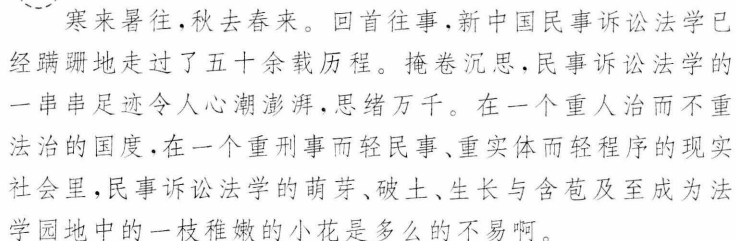 寒来暑往,秋去春来。回首往事,新中国民事诉讼法学已
经蹒跚地走过了五十余载历程。掩卷沉思,民事诉讼法学的
一串串足迹令人心潮澎湃,思绪万千。在一个重人治而不重
法治的国度,在一个重刑事而轻民事、重实体而轻程序的现实
社会里,民事诉讼法学的萌芽、破土、生长与含苞及至成为法
学园地中的一枝稚嫩的小花是多么的不易啊。